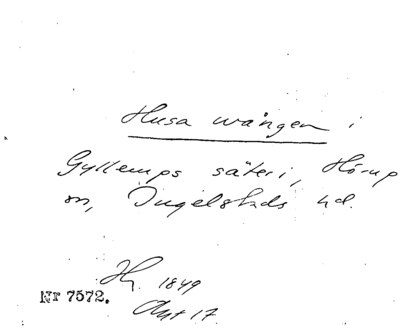 Husa wången i
Gyllemps säteri, Hörup
sn, Ingelstads hd.
Hy. 1849
Nr 7572.
Akt 17